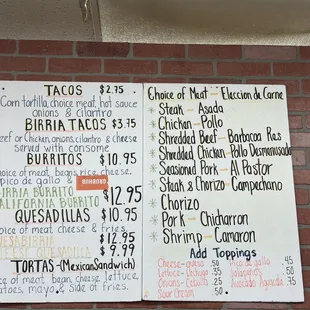 TACOS $2.75
Corn tortilla, choice meat, hot sauce
onions & cilantro
BIRRIA TACOS $3.75
Beef or Chicken, onions, cilantro & cheese
served with consome
BURRITOS $10.95
choice of meat, beans, rice, cheese
pico de gallo &
BIRRIA BURRITO
CALIFORNIA BURRITO $12.95
QUESADILLAS $10.95
choice of meat & cheese
$12.95
CHEESE QUESADILLA $9.99
TORTAS-(Mexican Sandwich)
choice of meat, bean, cheese, lettuce,
tomatoes, mayo & side of fries.
Choice of Meat - Eleccion de Carne
Steak - Asada
Chicken - Pollo
Shredded Beef - Barbacoa Res
Shredded Chicken - Pollo Desmenusada
Seasoned Pork - Al Pastor
Steak & Chorizo - Campechano
Chorizo
Pork - Chicharron
Shrimp - Camaron
Add Toppings
Cheese-queso .50 Pico de gallo .45
Lettuce-Lechuga .35 Jalapeños .50
Onions-Cebolla .25 Avocado Aguacate .75
Sour Cream .50